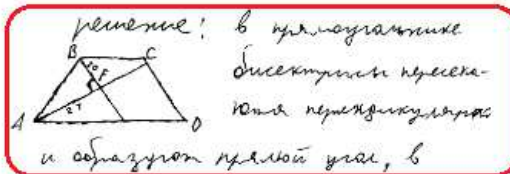 решение: в прямоугольнике
B C
10 F
бисектрисы пересека-
ются перендикулярно
27
A D
и образуют прямой угол, в